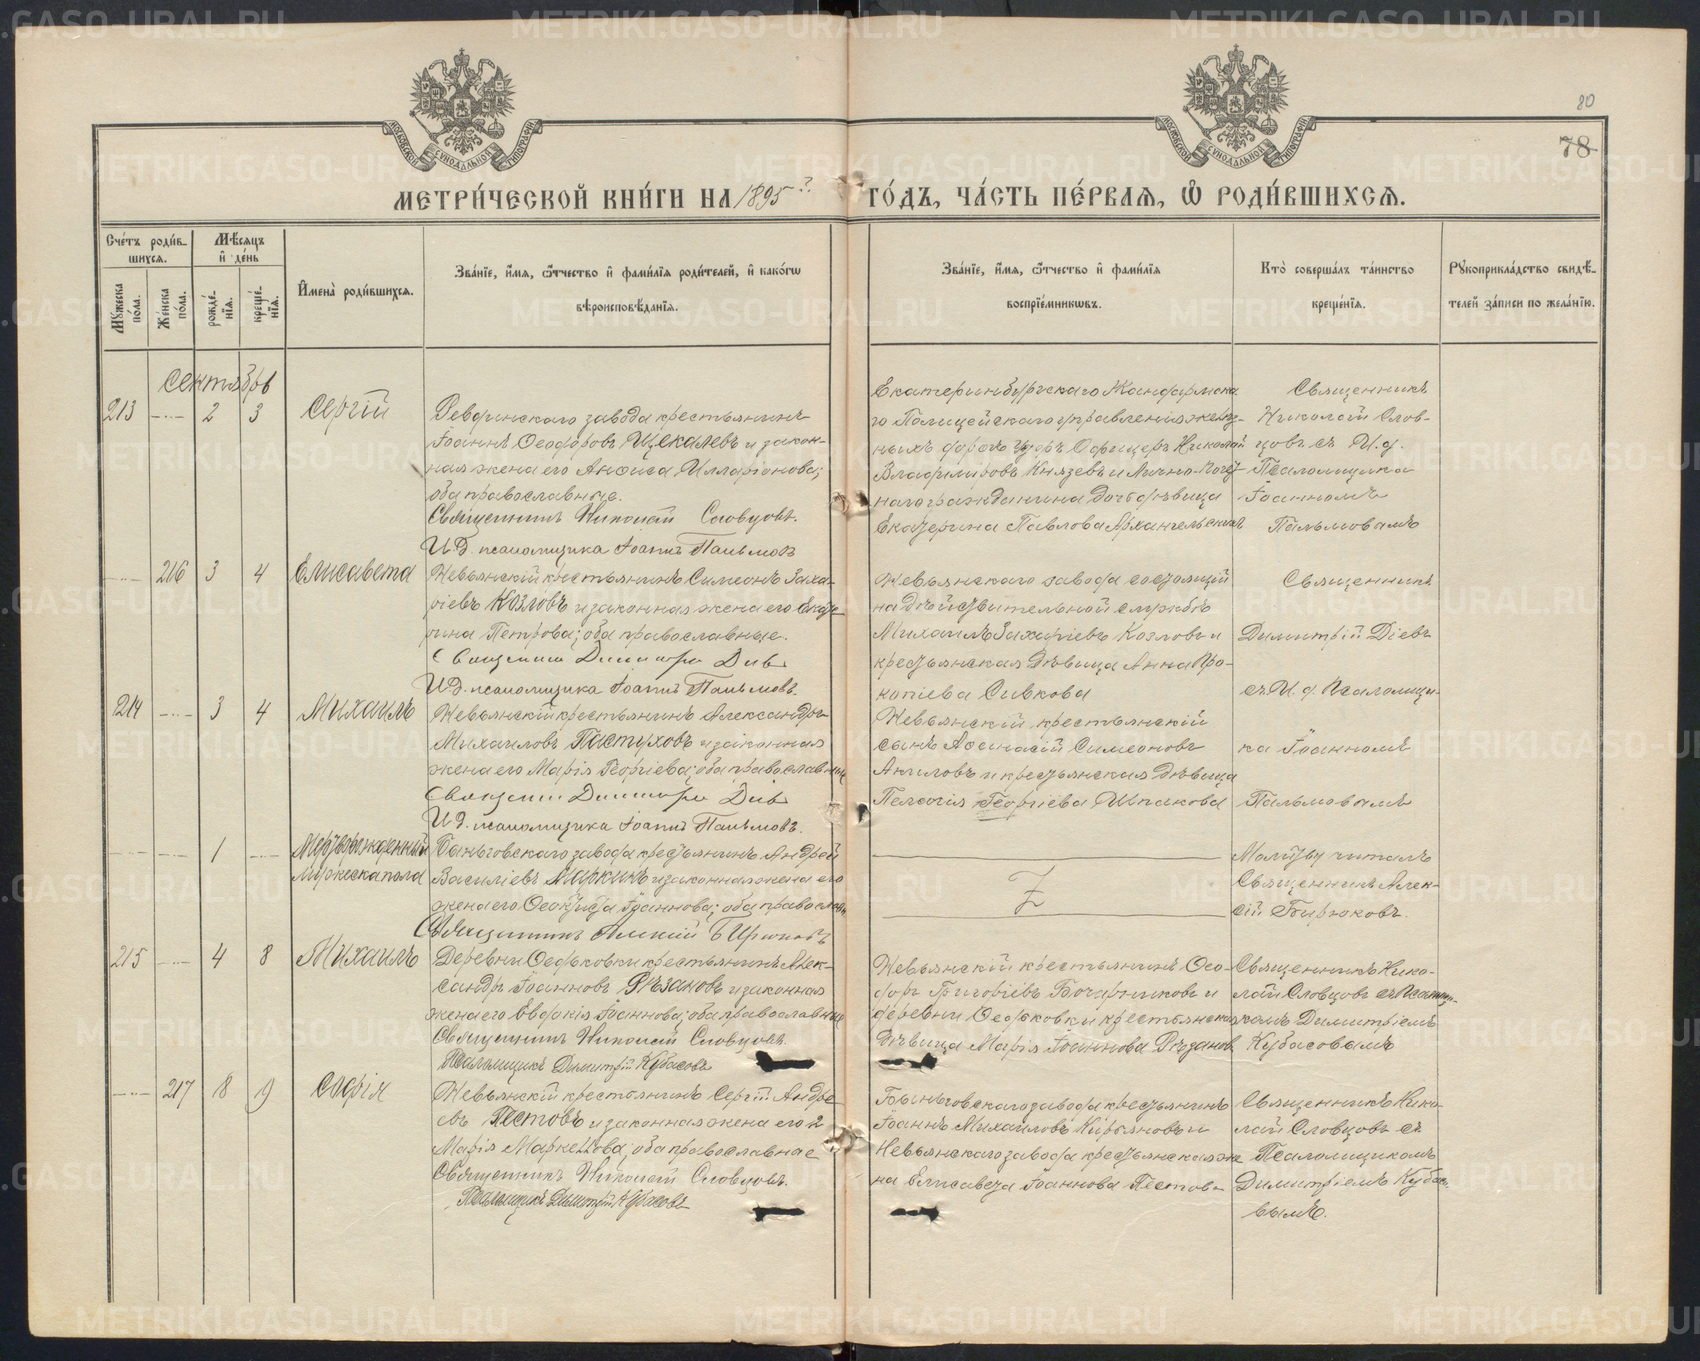 80
78
МОСКОВСКОЙ СѴНОДАЛЬНОЙ ТИПОГРАФІИ
МОСКОВСКОЙ СѴНОДАЛЬНОЙ ТИПОГРАФІИ
МЕТРИ́ЧЕСКОЙ КНИ́ГИ НА 1895 ГО́ДЪ, ЧА́СТЬ ПЕ́РВАЯ, Ѡ҆ РОДИ́ВШИХСЯ.
Сче́тъ роди́в-
шихся.
Мꙋ́жеска по́ла.
Же́нска по́ла.
Мѣ́сяцъ
и҆ де́нь
рожде́-нїя.
креще́-нїя.
И҆мена̀ роди́вшихся.
Зва́нїе, и҆́мя, ѻ҆́тчество и҆ фами́лїя роди́телей, и҆ како́гѡ
вѣроисповѣ́данїя.
Зва́нїе, и҆́мя, ѻ҆́тчество и҆ фами́лїя
воспрїе́мникѡвъ.
Кто̀ соверша́лъ та́инство
креще́нїя.
Рꙋкоприкла́дство свидѣ́-
телей за́писи по жела́нїю.
Сентябрь
213 2 3 Сергій
Ревдинскаго завода крестьянинъ
Іоаннъ Ѳеодоровъ Щекалевъ и закон-
ная жена его Анфиса Илларіонова;
оба православные.
Священникъ Николай Словцовъ.
И.д. псаломщика Іоаннъ Пальмовъ
Екатеринбургскаго Жандармска
го Полицейскаго управленія желѣз-
ныхъ дорогъ Унтеръ Офицеръ Николай
Владиміровъ Князевъ и Лично-Почет-
наго гражданина дочь дѣвица
Екатерина Павлова Архангельская
Священникъ
Николай Слов-
цовъ съ И.д.
Псаломщика
Іоанномъ
Пальмовымъ
216 3 4 Елисавета
Невьянскій крестьянинъ Симеонъ Заха-
ріевъ Козловъ и законная жена его Екате-
рина Петрова; оба православные.
Священникъ Димитрій Діевъ
И.д. псаломщика Іоаннъ Пальмовъ.
Невьянскаго завода состоящій
на дѣйствительной службѣ
Михаилъ Захаріевъ Козловъ и
крестьянская дѣвица Анна Про-
копіева Сивкова
Священникъ
Димитрій Діевъ
съ И.д. Псаломщи-
ка Іоанномъ
Пальмовымъ
214 3 4 Михаилъ
Невьянскій крестьянинъ Александръ
Михаиловъ Пастуховъ и законная
жена его Марія Георгіева; оба православные
Священникъ Димитрій Діевъ
И.д. псаломщика Іоаннъ Пальмовъ.
Невьянскій крестьянскій
сынъ Аѳанасій Симеоновъ
Акиловъ и крестьянская дѣвица
Пелагія Георгіева Шпакова
1 Мертворожденный
мужеска пола
Быньговскаго завода крестьянинъ Андрей
Василіевъ Маркинъ и законная жена его
жена его Ѳеоктиста Іоаннова; оба православн
Священникъ Алексій Бирюковъ
Z
Молитву читалъ
Священникъ Алек-
сій Бирюковъ.
215 4 8 Михаилъ
Деревни Ѳедьковки крестьянинъ Алек-
сандръ Іоанновъ Рѣзановъ и законная
жена его Евдокія Іоаннова; оба православные
Священникъ Николай Словцовъ.
Псаломщикъ Димитрій Кубасовъ
Невьянскій крестьянинъ Ѳео-
доръ Григоріевъ Бочарниковъ и
деревни Ѳедьковки крестьянская
дѣвица Марія Іоаннова Рѣзанов
Священникъ Нико-
лай Словцовъ съ Псаломщи-
комъ Димитріемъ
Кубасовымъ
217 8 9 Софія
Невьянскій крестьянинъ Сергій Андре
евъ Пестовъ и законная жена его 2
Марія Маркеллова; оба православные
Священникъ Николай Словцовъ.
Псаломщикъ Димитрій Кубасовъ
Быньговскаго завода крестьянинъ
Іоаннъ Михаиловъ Кирьяновъ и
Невьянскаго завода крестьянская же
на Елисавета Іоаннова Пестова
Священникъ Нико-
лай Словцовъ съ
Псаломщикомъ
Димитріемъ Кубасо-
вымъ.